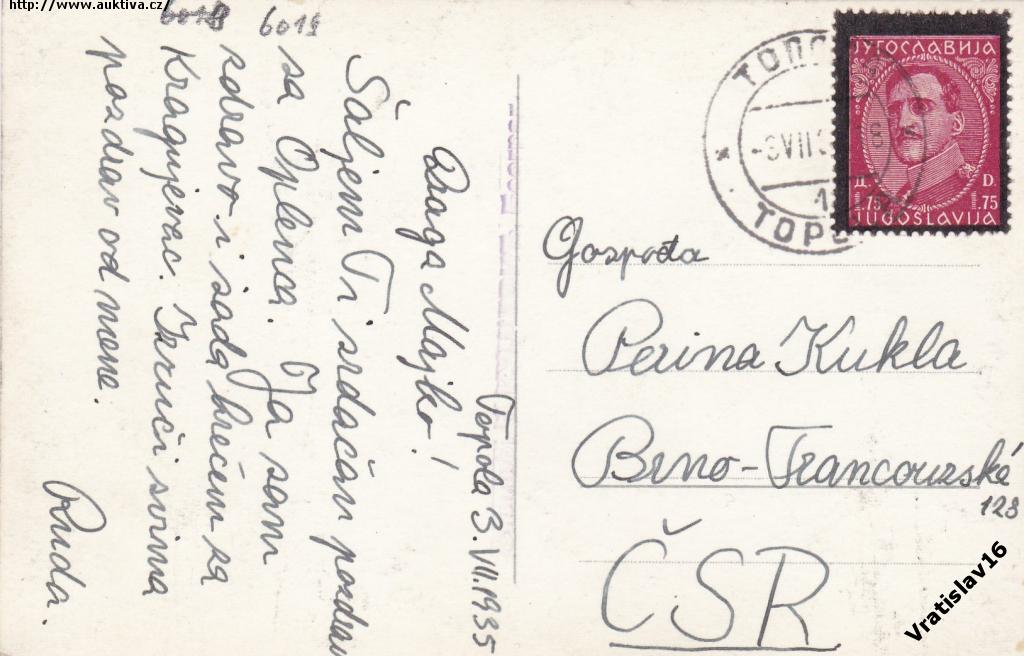 http://www.auktiva.cz/
6018
6019
Topola 3.VII.1935
Draga Majko!
Šaljem Ti srdačan pozdrav
sa Oplenca. Ja sam
zdravo i sada krećem za
Kragujevac. Izruči svima
pozdrav od mene.
Ruda.
ЈУГОСЛАВИЈА
Д. D.
1.75 1.75
JUGOSLAVIJA
Gospođa
Perina Kukla
Brno-Francouzské
128
ČSR
Vratislav16